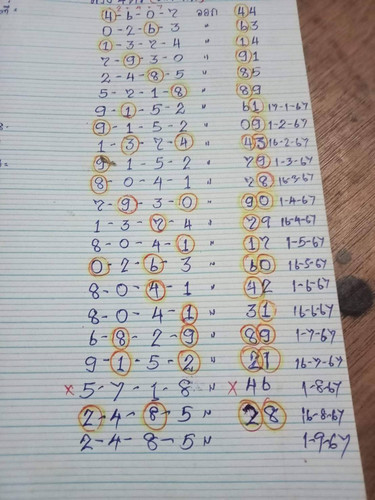 4-6-0-7 ออก 44
0-2-6-3 " 63
1-3-7-4 " 14
7-9-3-0 " 91
2-4-8-5 " 85
5-7-1-8 " 89
9-1-5-2 " 61 17-1-67
9-1-5-2 " 09 1-2-67
1-3-7-4 " 43 16-2-67
9-1-5-2 " 79 1-3-67
8-0-4-1 " 78 16-3-67
7-9-3-0 " 90 1-4-67
1-3-7-4 " 79 16-4-67
8-0-4-1 " 17 1-5-67
0-2-6-3 " 60 16-5-67
8-0-4-1 " 42 1-6-67
8-0-4-1 " 31 16-6-67
6-8-2-9 " 89 1-7-67
9-1-5-2 " 21 16-7-67
x 5-7-1-8 " x 46 1-8-67
2-4-8-5 " 28 16-8-67
2-4-8-5 " 1-9-67